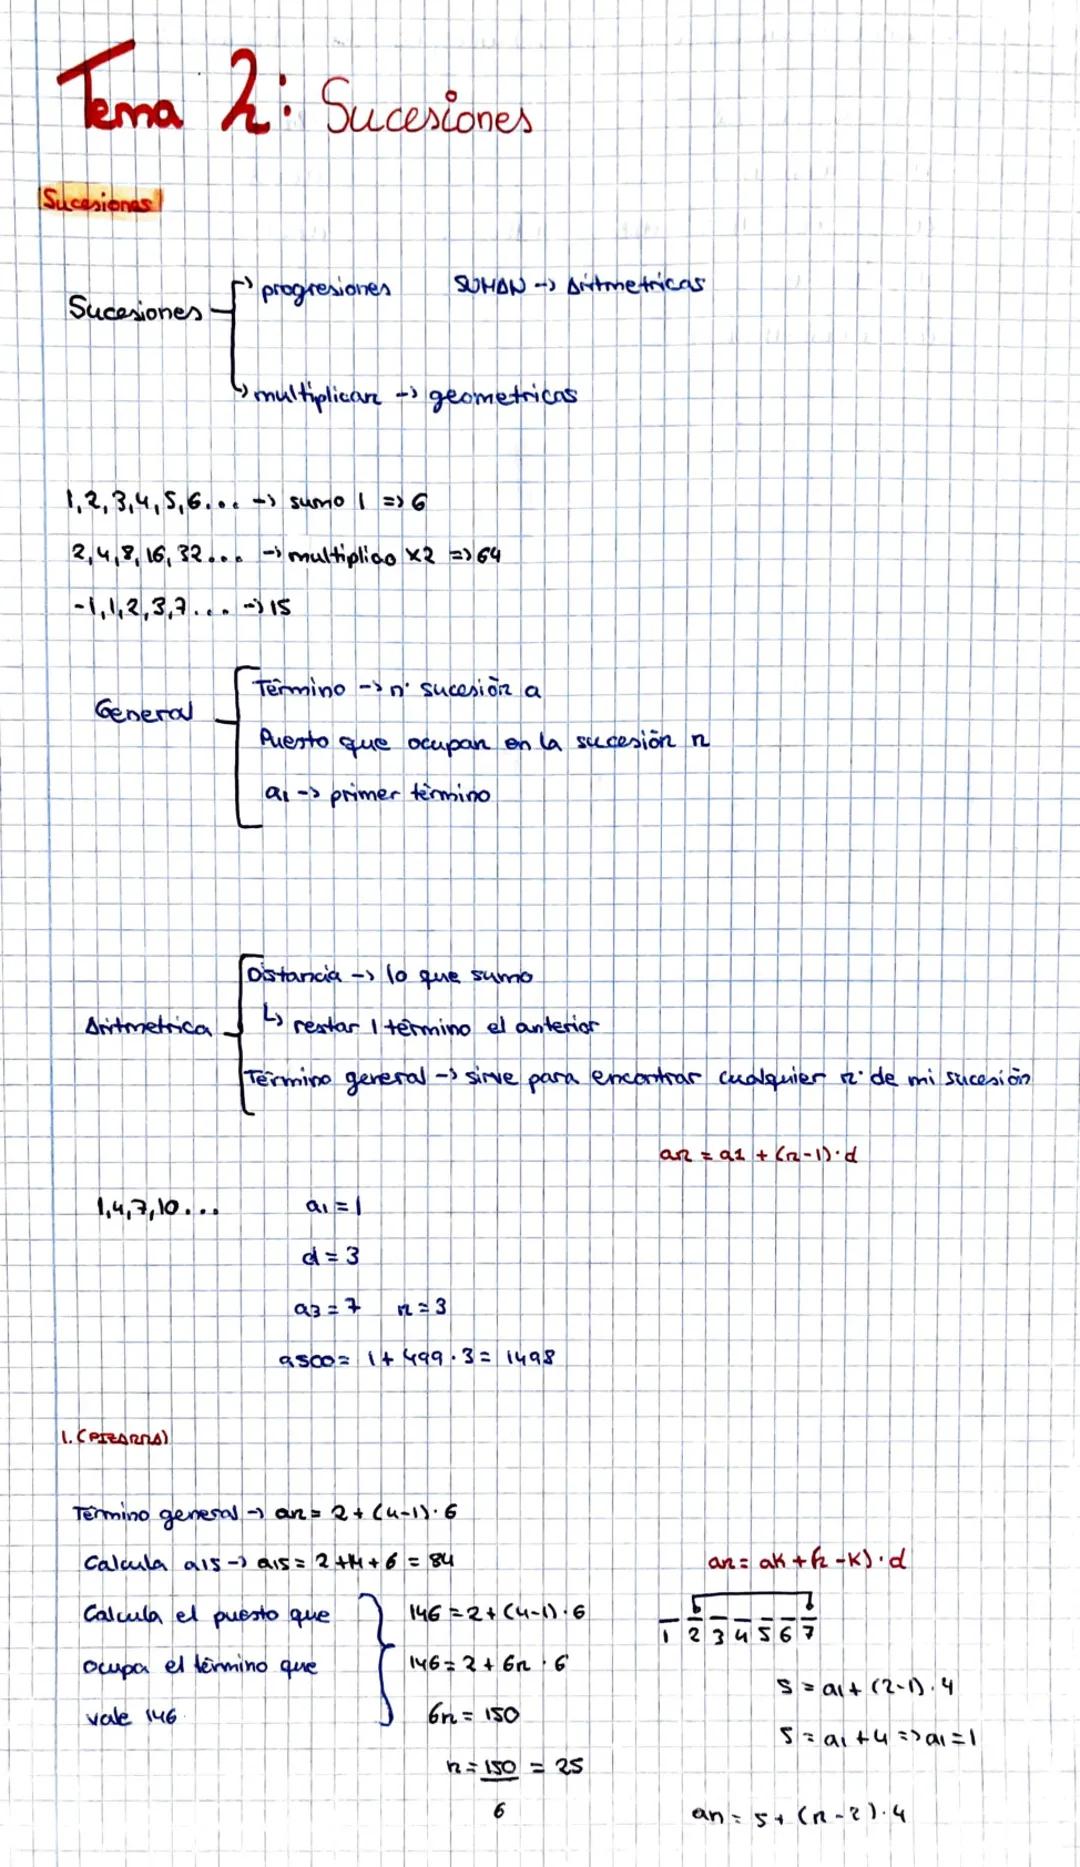 Tema 2: Sucesiones
Sucesiones
Sucesiones
progresiones SUMAN -> Aritmetricas
multiplicar -> geometricas
1,2,3,4,5,6... -> sumo 1 => 6
2,4,8,16,32... -> multiplico x2 => 64
-1,1,2,3,7... -> 15
General
Término -> nº sucesión a
Puesto que ocupan en la sucesión n
a1 -> primer término
Aritmetrica
Distancia -> lo que sumo
↳ restar 1 término el anterior
Término general -> sirve para encontrar cualquier nº de mi sucesión
an = a1 + (n-1)·d
1,4,7,10... a1 = 1
d = 3
a3 = 7 n = 3
a500 = 1 + 499·3 = 1498
1. (PIZARRA)
Término general -> an = 2 + (4-1)·6
Calcula a15 -> a15 = 2+14+6 = 84
Calcula el puesto que
ocupa el término que
vale 146
146 = 2 + (4-1)·6
146 = 2 + 6n · 6
6n = 150
n = 150/6 = 25
an = ak + (n-k)·d
1 2 3 4 5 6 7
5 = a1 + (2-1)·4
5 = a1 + 4 => a1 = 1
an = 5 + (n-2)·4